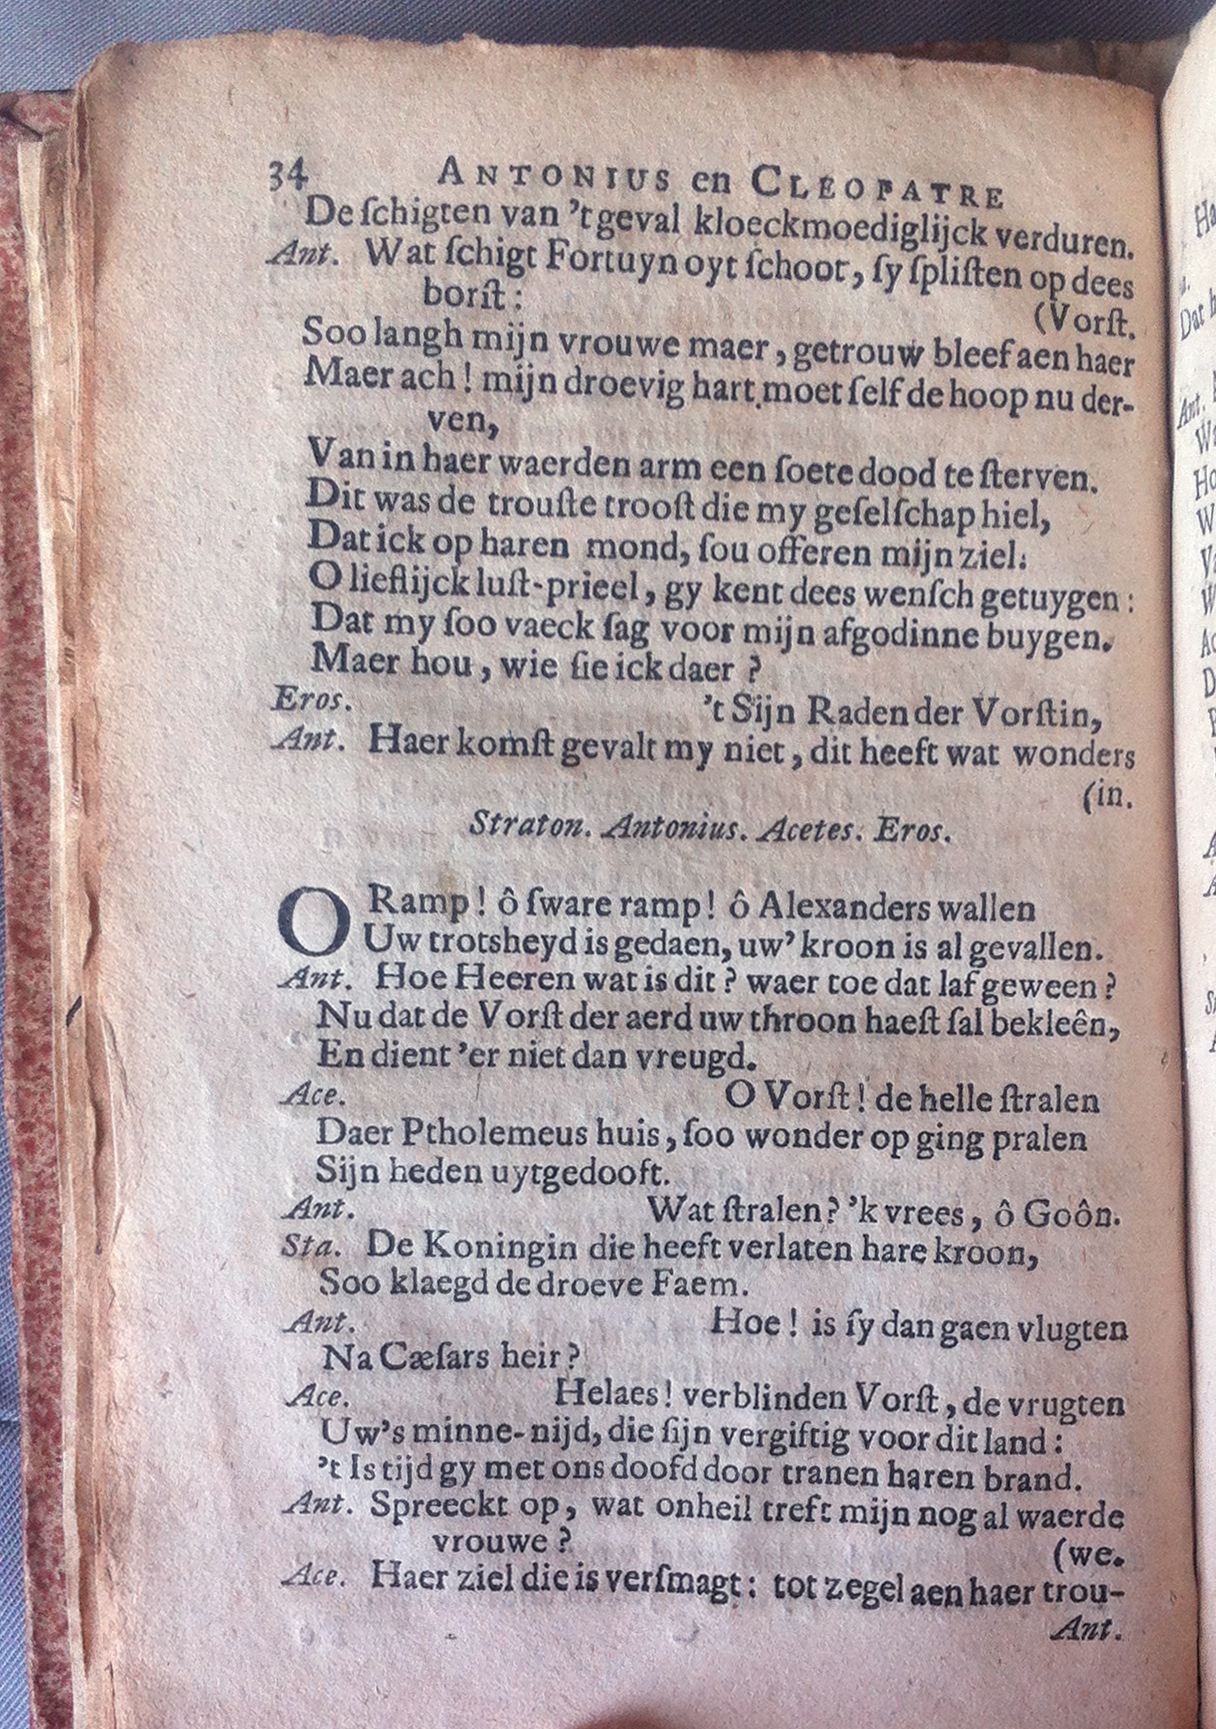 34 ANTONIUS en CLEOPATRE
De ſchigten van 't geval kloeckmoediglijck verduren.
Ant. Wat ſchigt Fortuyn oyt ſchoot, ſy ſpliſten op dees
borſt: (Vorſt.
Soo langh mijn vrouwe maer, getrouw bleef aen haer
Maer ach! mijn droevig hart moet ſelf de hoop nu der-
ven,
Van in haer waerden arm een ſoete dood te ſterven.
Dit was de trouſte trooſt die my geſelſchap hiel,
Dat ick op haren mond, ſou offeren mijn ziel:
O lieflijck luſt-prieel, gy kent dees wenſch getuygen:
Dat my ſoo vaeck ſag voor mijn afgodinne buygen.
Maer hou, wie ſie ick daer?
Eros. 't Sijn Raden der Vorſtin,
Ant. Haer komſt gevalt my niet, dit heeft wat wonders
(in.
Straton. Antonius. Acetes. Eros.
O Ramp! ô ſware ramp! ô Alexanders wallen
Uw trotsheyd is gedaen, uw' kroon is al gevallen.
Ant. Hoe Heeren wat is dit? waer toe dat laf geween?
Nu dat de Vorſt der aerd uw throon haeſt ſal bekleên,
En dient 'er niet dan vreugd.
Ace. O Vorſt! de helle ſtralen
Daer Ptholemeus huis, ſoo wonder op ging pralen
Sijn heden uytgedooft.
Ant. Wat ſtralen? 'k vrees, ô Goôn.
Sta. De Koningin die heeft verlaten hare kroon,
Soo klaegd de droeve Faem.
Ant. Hoe! is ſy dan gaen vlugten
Na Cæſars heir?
Ace. Helaes! verblinden Vorſt, de vrugten
Uw's minne-nijd, die ſijn vergiftig voor dit land:
't Is tijd gy met ons doofd door tranen haren brand.
Ant. Spreeckt op, wat onheil treft mijn nog al waerde
vrouwe? (we.
Ace. Haer ziel die is verſmagt: tot zegel aen haer trou-
Ant.